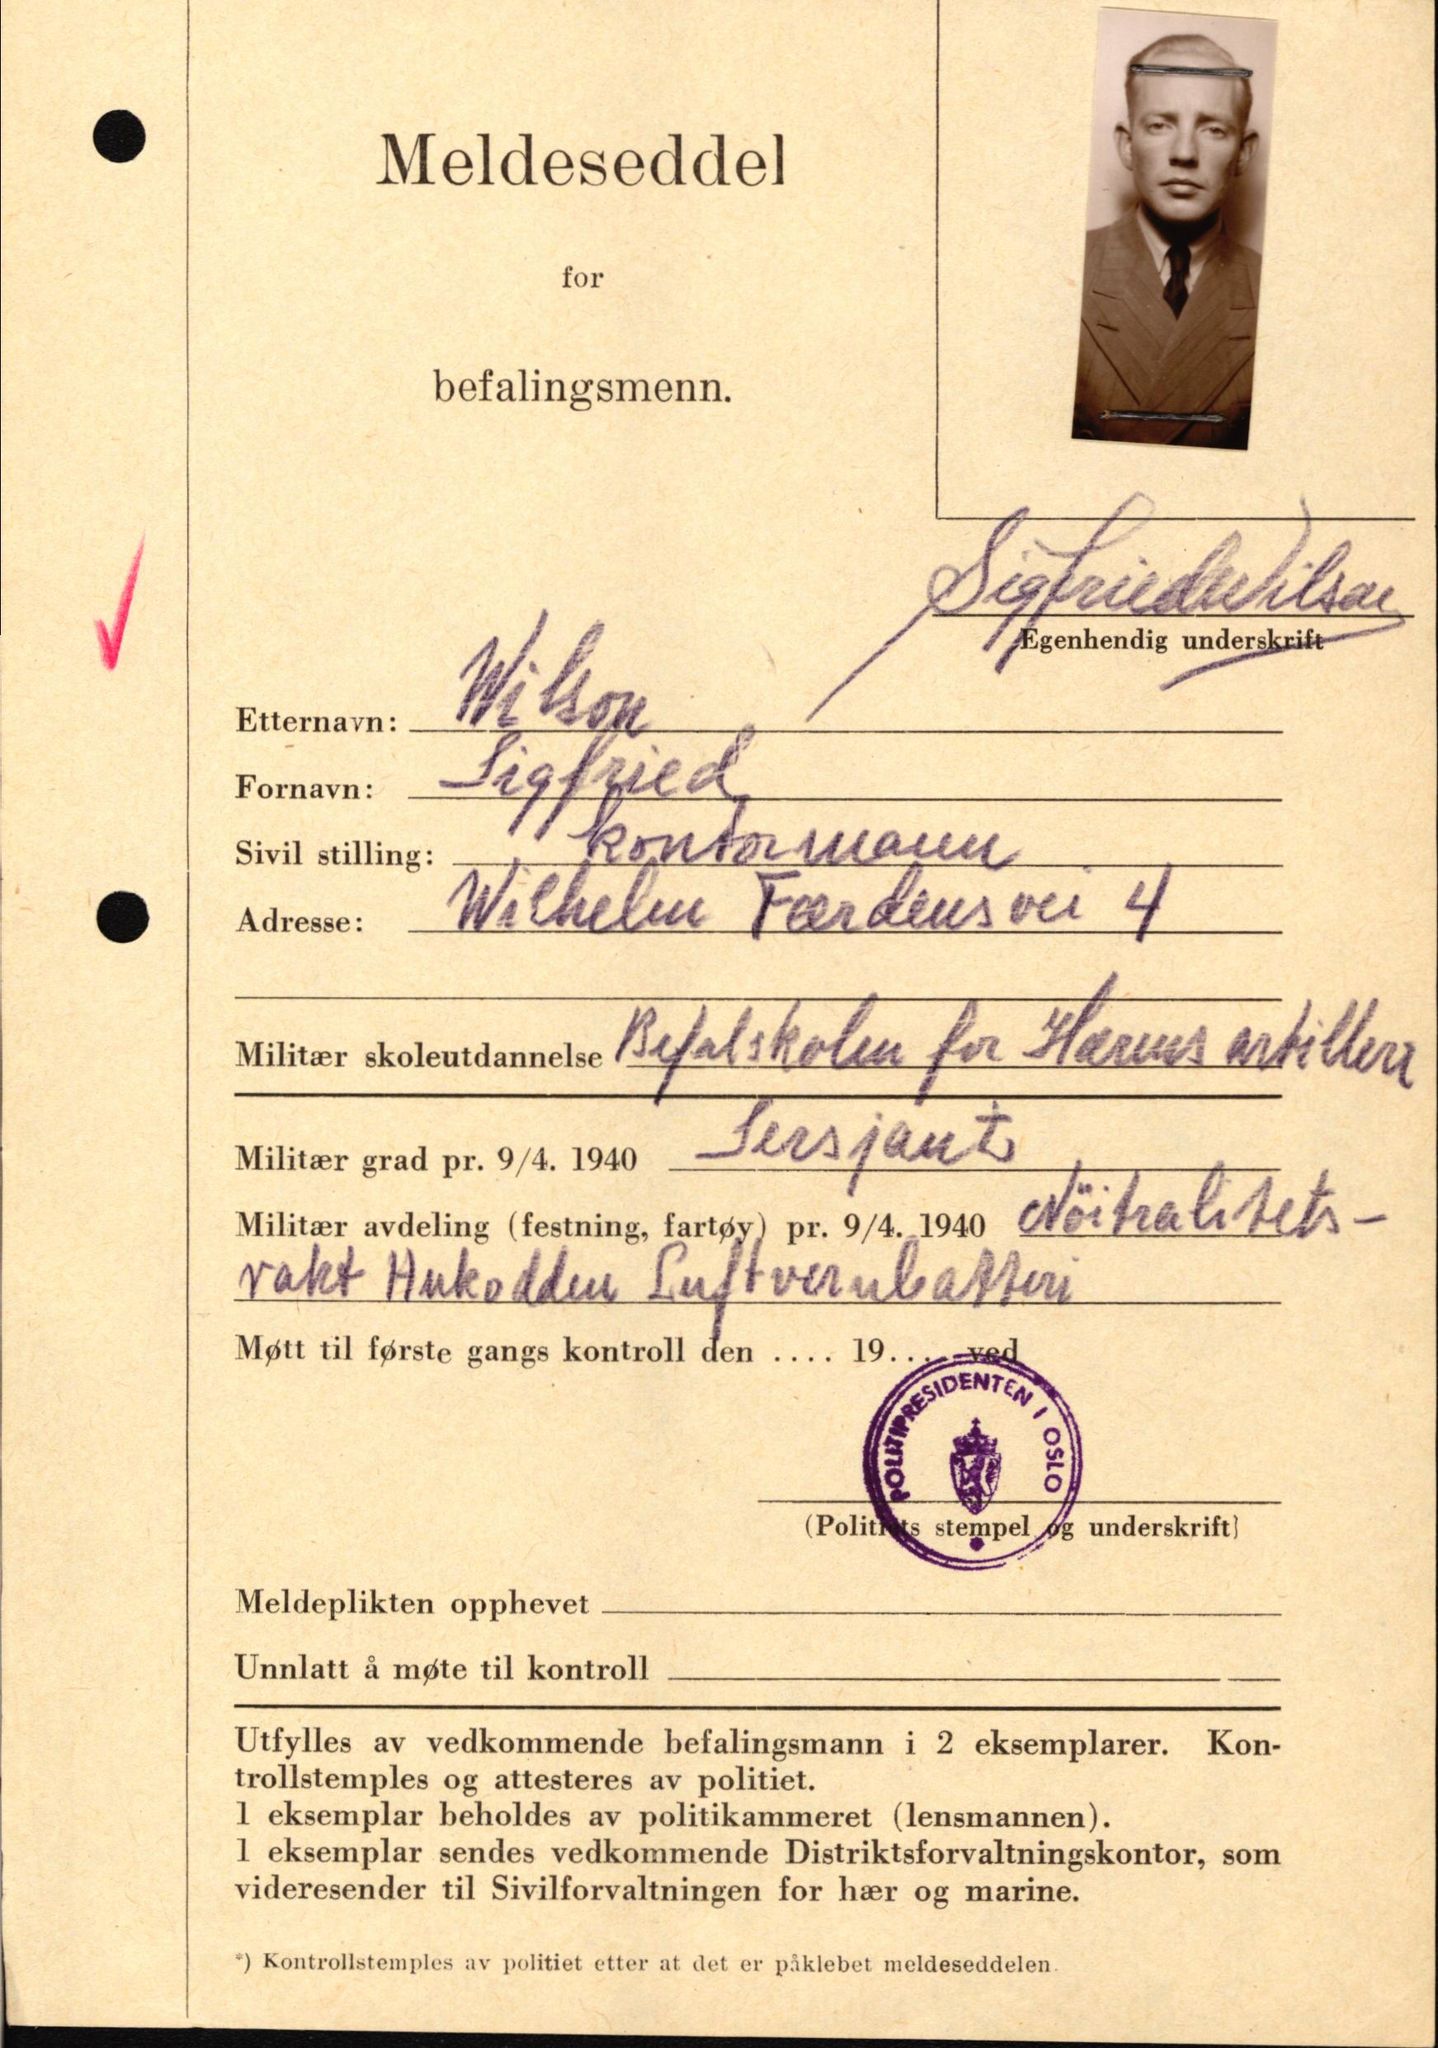 Meldeseddel
for
befalingsmenn.
Sigfried Wilson
Egenhendig underskrift
Etternavn: Wilson
Fornavn: Sigfried
Sivil stilling: kontormann
Adresse: Wilhelm Færdensvei 4
Militær skoleutdannelse Befalskolen for Hærens artilleri
Militær grad pr. 9/4. 1940 Sersjant
Militær avdeling (festning, fartøy) pr. 9/4. 1940 Nöitralitets-
vakt Hukodden Luftvernbatteri
Møtt til første gangs kontroll den .... 19.... ved
POLITIPRESIDENTEN I OSLO
(Politiets stempel og underskrift)
Meldeplikten opphevet
Unnlatt å møte til kontroll
Utfylles av vedkommende befalingsmann i 2 eksemplarer. Kon-
trollstemples og attesteres av politiet.
1 eksemplar beholdes av politikammeret (lensmannen).
1 eksemplar sendes vedkommende Distriktsforvaltningskontor, som
videresender til Sivilforvaltningen for hær og marine.
*) Kontrollstemples av politiet etter at det er påklebet meldeseddelen.